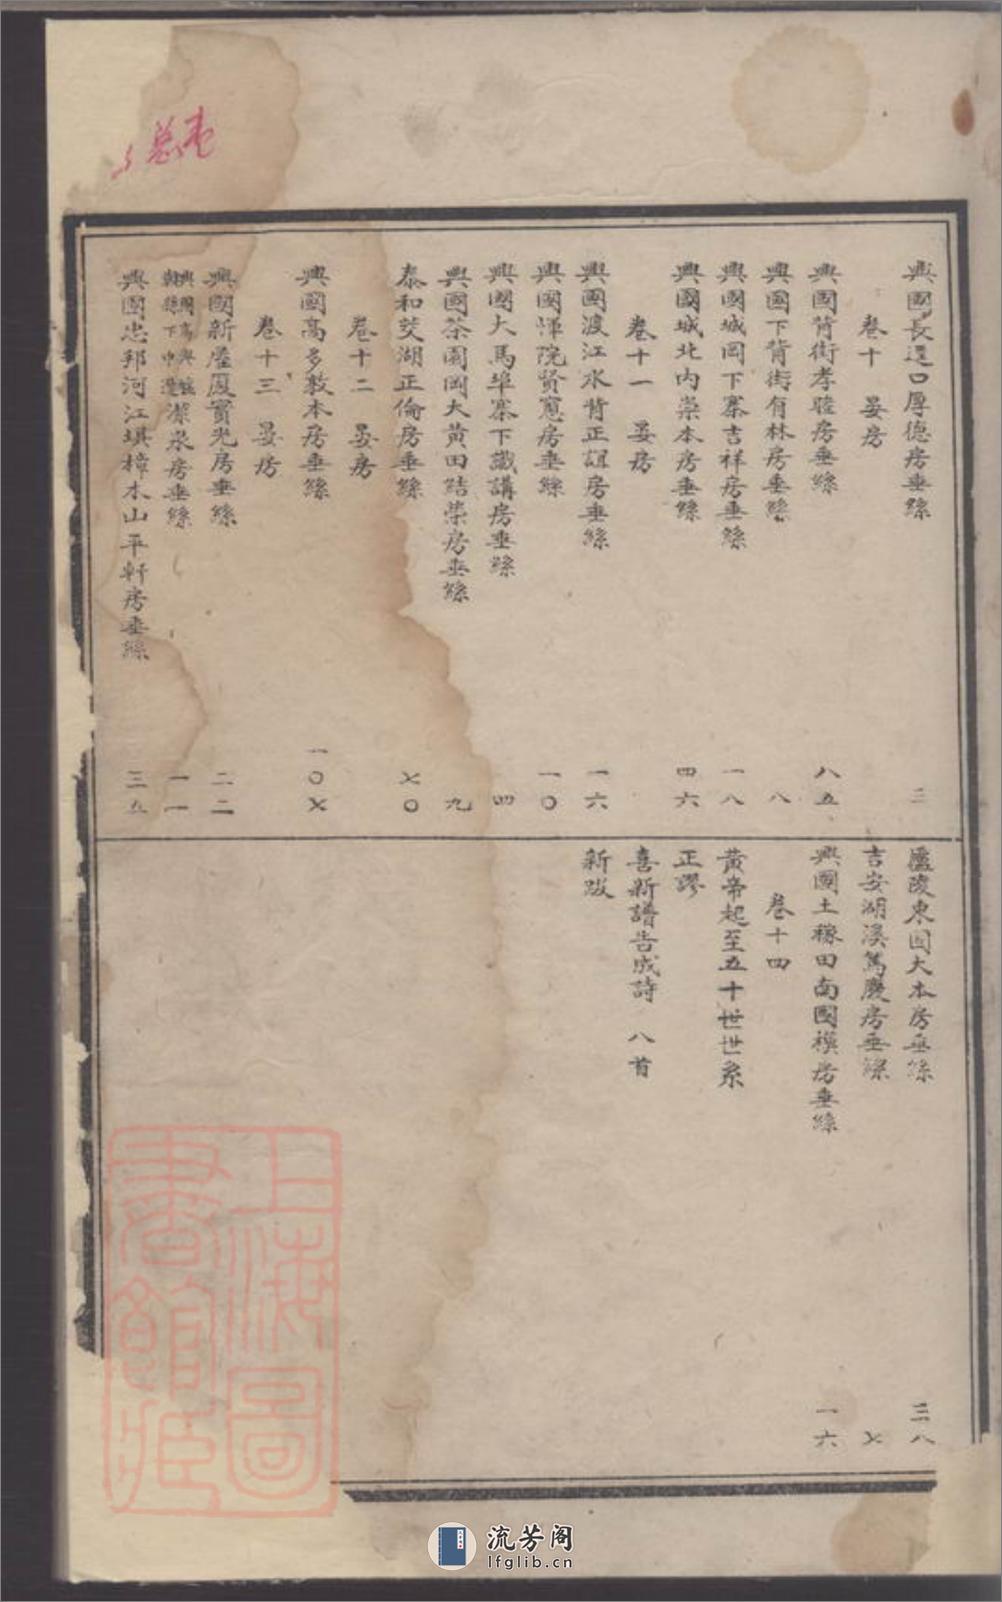 興國長逕口厚德房垂絲 三
卷十 晏房
興國背街孝睦房垂絲 八五
興國下背街有林房垂絲 八
興國城岡下寨吉祥房垂絲 一八
興國城北內崇本房垂絲 四六
卷十一 晏房
興國渡江水背正誼房垂絲 一六
興國渾院賢憲房垂絲 一〇
興國大馬埠寨下識講房垂絲 四
興國茶園岡大黃田結榮房垂絲 九
泰和茭湖正倫房垂絲 七〇
卷十二 晏房
興國高多敦本房垂絲 一〇七
卷十三 晏房
興國新廬鳳寶光房垂絲 二二
潔泉房垂絲 一一
興國忠邦河江塅樟木山平軒房垂絲 三五
廬陵東園大本房垂絲 三八
吉安湖溪篤慶房垂絲 七
興國土稼田南園模房垂絲 一六
卷十四
黃帝起至五十世世系
正謬
喜新譜告成詩 八首
新跋
上海圖
書館藏
流芳阁
lfglib.cn